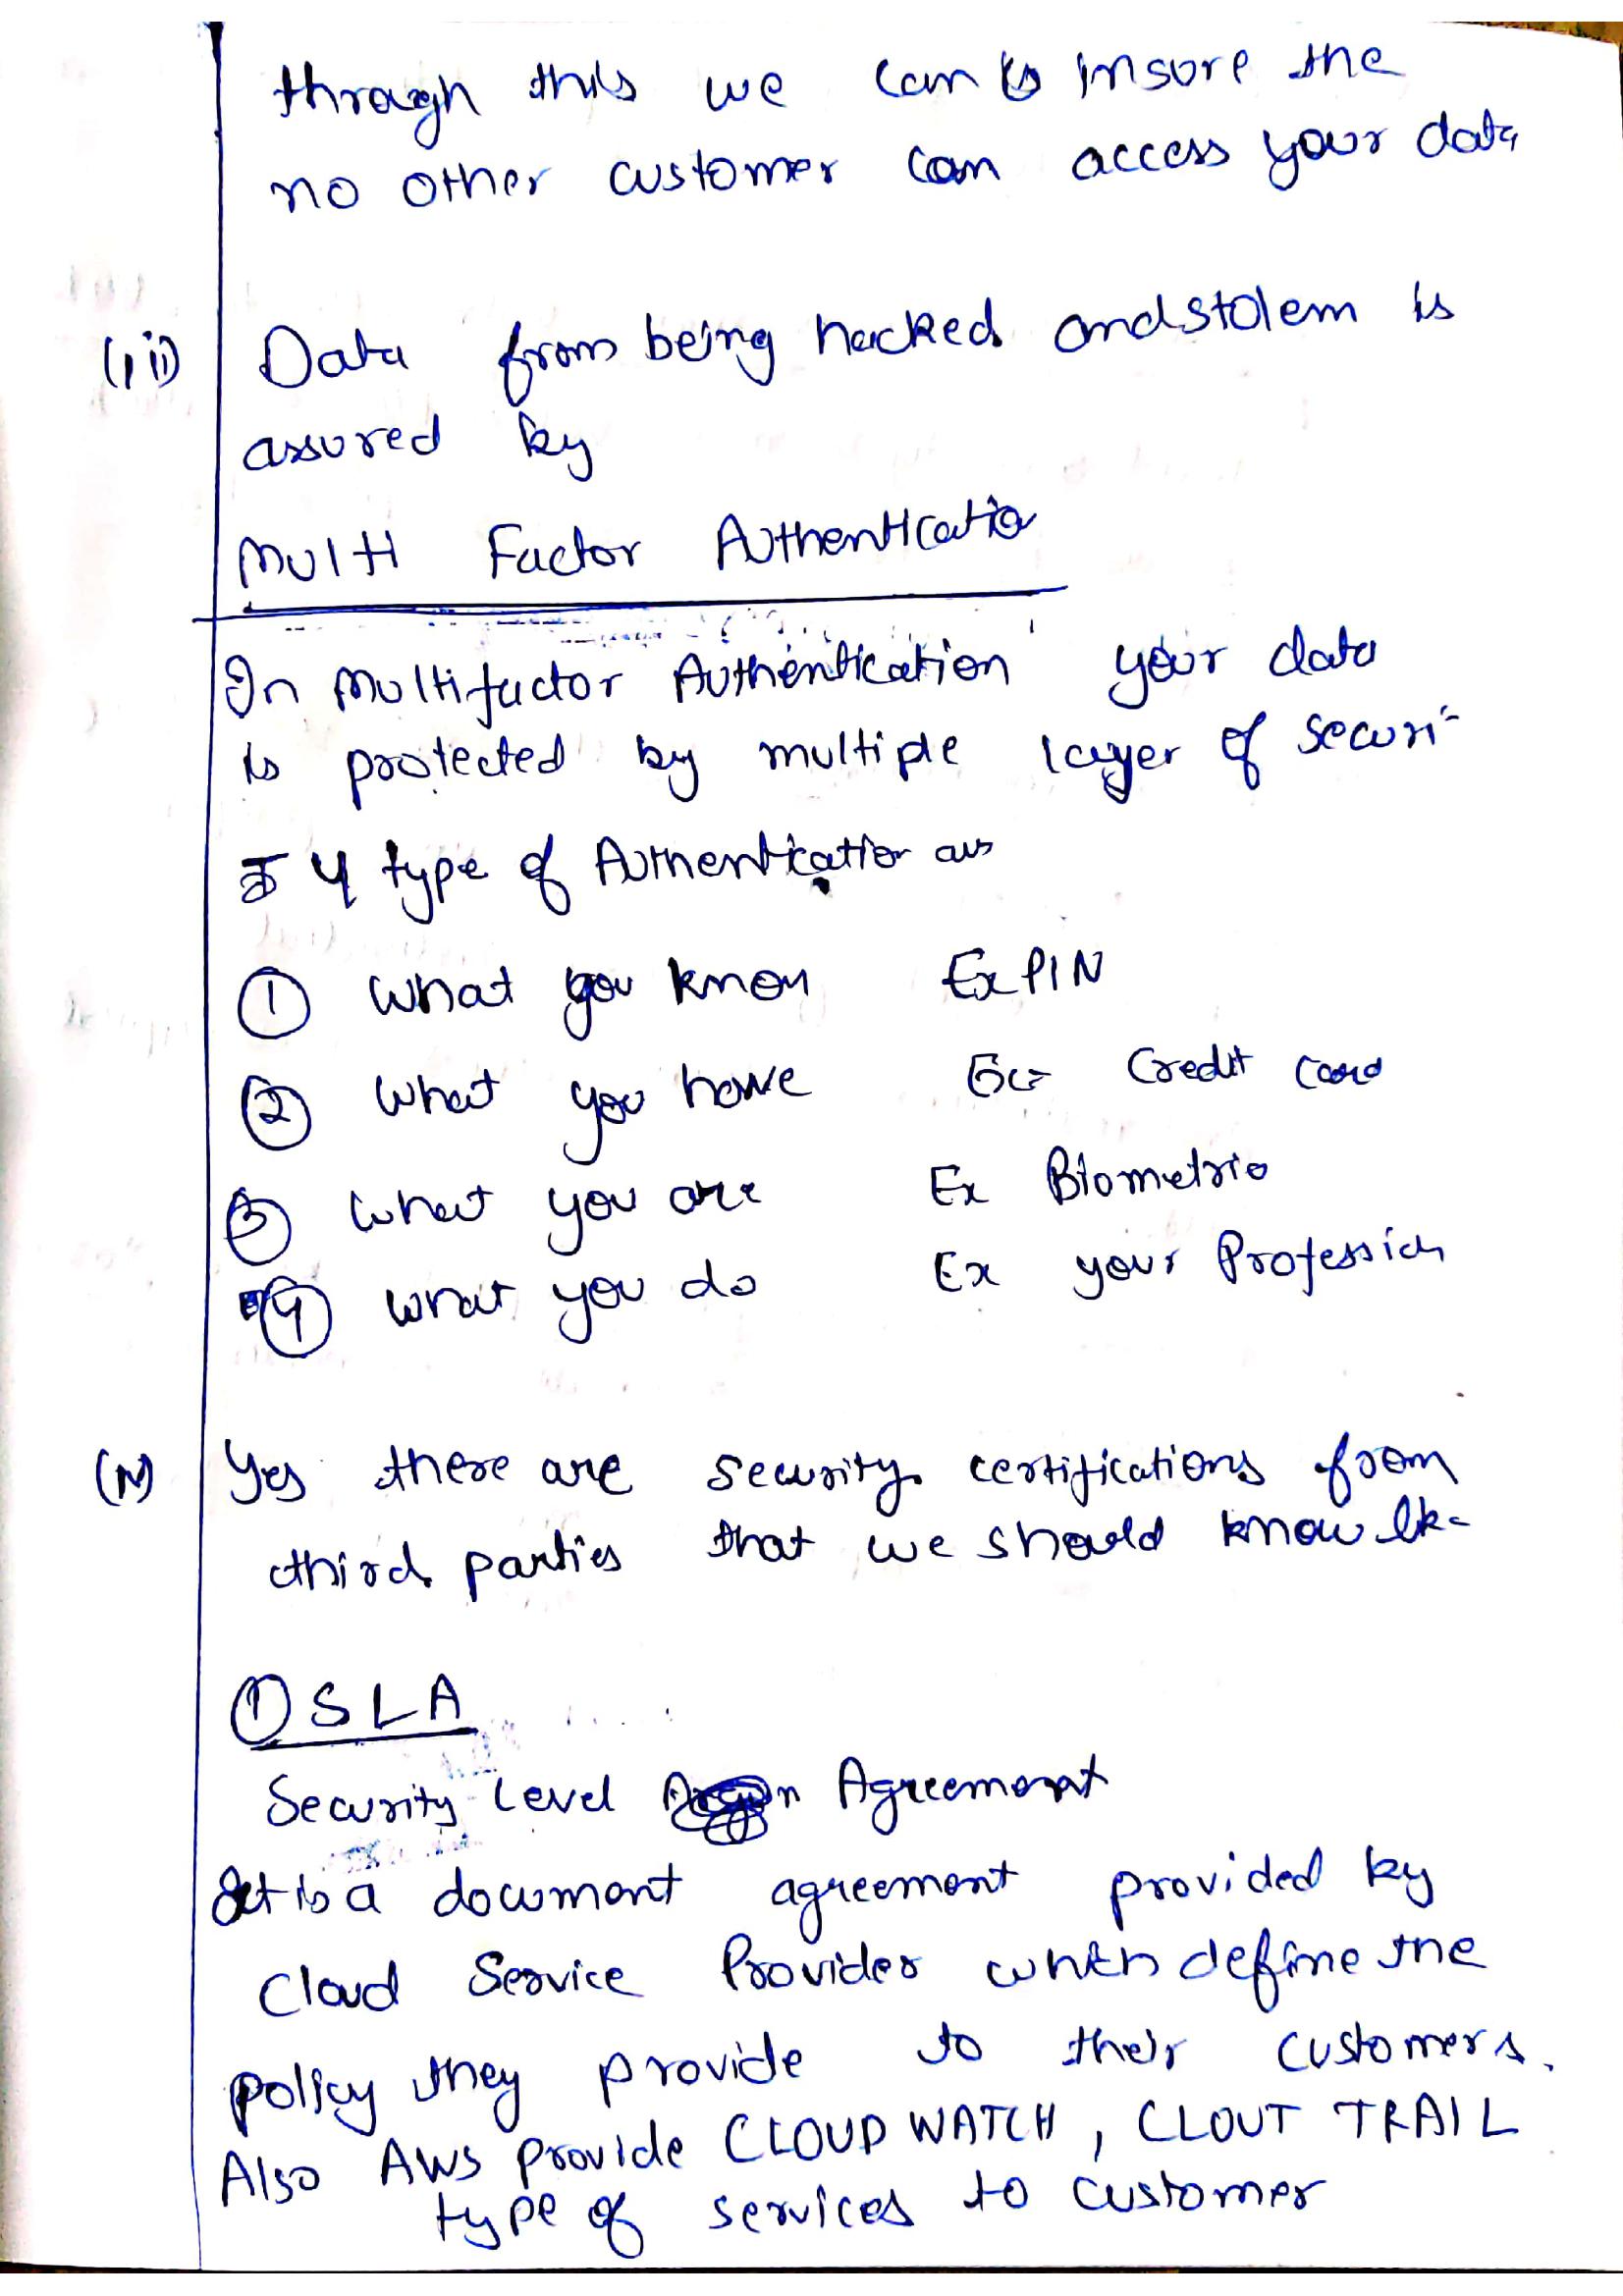 through this we can insore the
no other customer can access your data
(iii) Data from being hacked and stolem is
assured by
Multi Factor Authenticatio
In Multifactor Authentication your data
is protected by multiple layer of securi-
4 type of Authentication are
① What you know Ex PIN
② What you have Ex- Credit Card
③ What you are Ex Biometric
④ What you do Ex your Profession
(iv) Yes there are security certifications from
third parties that we should know like
① SLA
Security Level Agreement
It is a document agreement provided by
Cloud Service Provider which define the
policy they provide to their customers.
Also AWS provide CLOUD WATCH, CLOUT TRAIL
type of services to customer